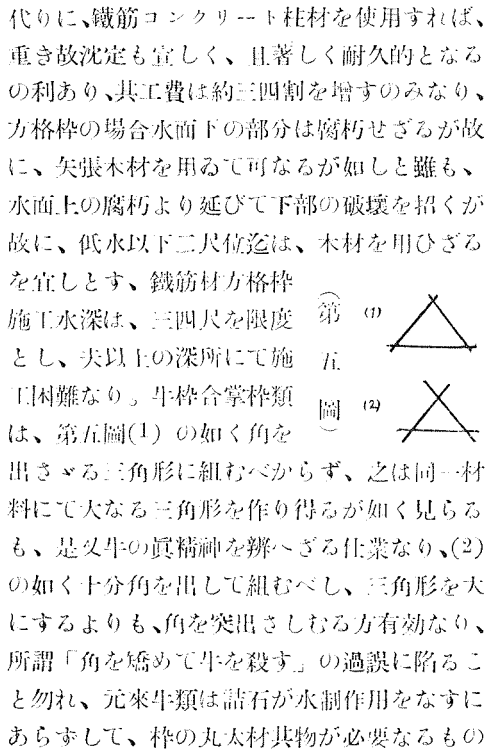 代りに、鐵筋コンクリート柱材を使用すれば、
重き故沈定も宜しく、且著しく耐久的となる
の利あり、其工費は約三四割を增すのみなり、
方格枠の場合水面下の部分は腐朽せざるが故
に、矢張木材を用ゐて可なるが如しと雖も、
水面上の腐朽より延びて下部の破壞を招くが
故に、低水以下二尺位迄は、木材を用ひざる
を宜しとす、鐵筋材方格枠
施工水深は、三四尺を限度
とし、夫以上の深所にて施
工困難なり。牛枠合掌枠類
は、第五圖(1) の如く角を
(第五圖)
(1)
(2)
出さゞる三角形に組むべからず、之は同一材
料にて大なる三角形を作り得るが如く見らる
も、是又牛の眞精神を辨へざる仕業なり、(2)
の如く十分角を出して組むべし、三角形を大
にするよりも、角を突出さしむる方有効なり、
所謂「角を矯めて牛を殺す」の過誤に陷るこ
と勿れ、元來牛類は詰石が水制作用をなすに
あらずして、枠の丸太材其物が必要なるもの